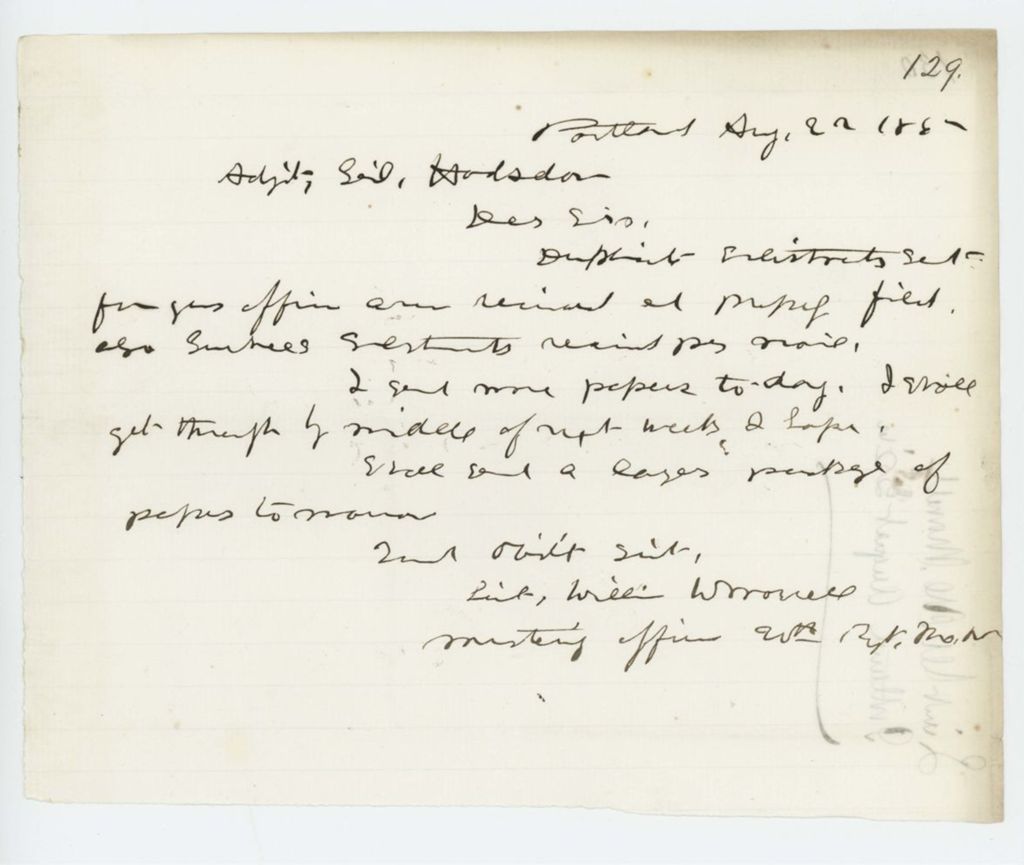 129.
Portland Aug. 22 186
Adjt, Genl, Hodsdon
Dear Sir,
Duplicate Enlistments sent
from your office are received & properly filed.
also Enlistments received per mail.
I send more papers to-day. I shall
get through by middle of next week, I hope
Shall send a larger package of
papers tomorrow
Your Obdt Sevt,
Lieut, Willie Worrall
mustering officer 20th Regt.